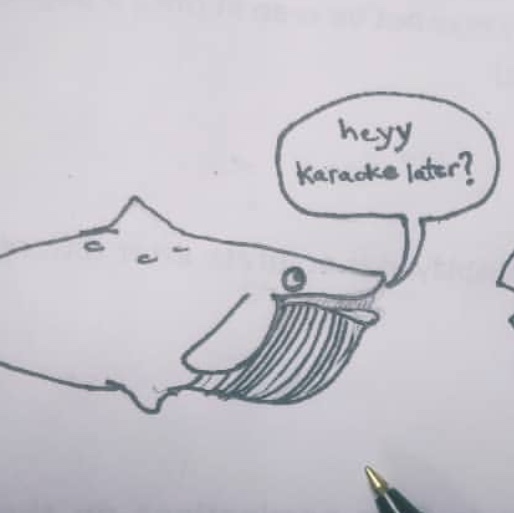 heyy
karaoke later?